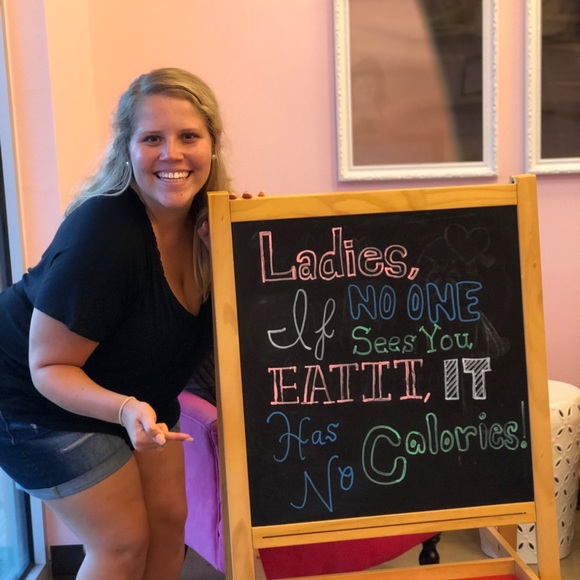 Ladies,
If NO ONE
Sees You
EAT IT, IT
Has
No Calories!